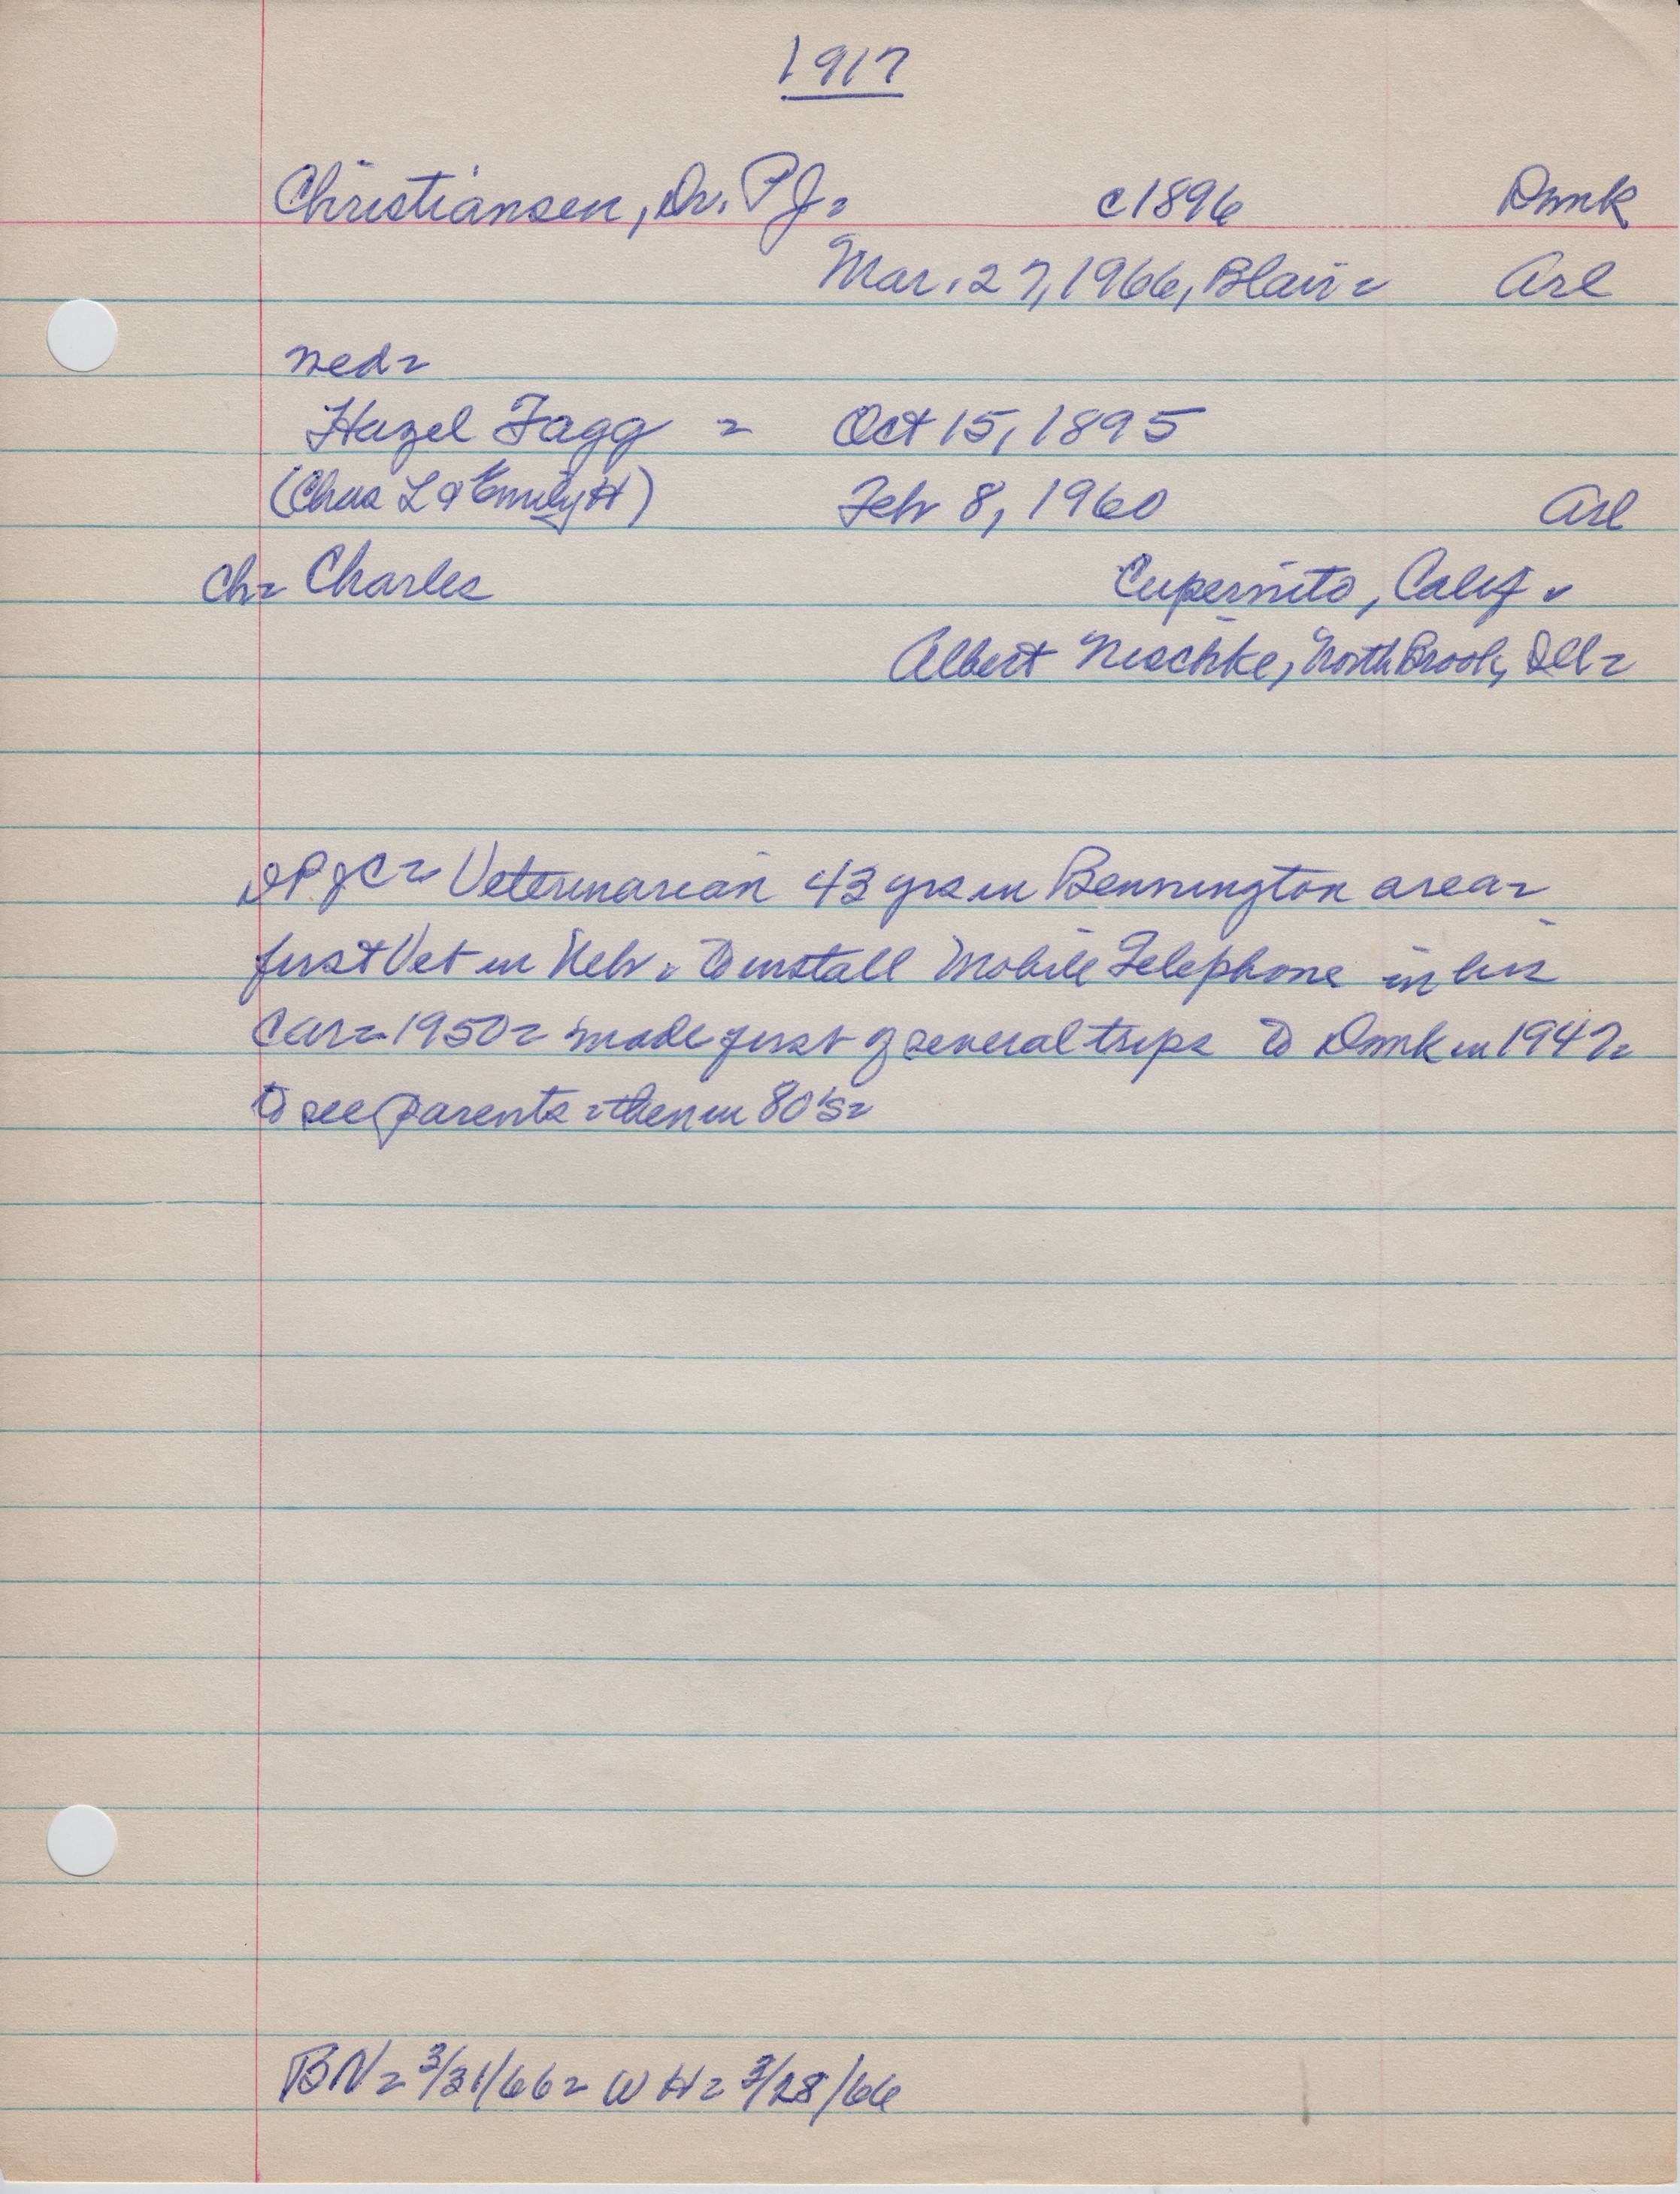 1917
Christiansen, Dr. P J = c1896 Dmnk
Mar. 27, 1966, Blair = Arl
Med =
Hazel Fagg = Oct 15, 1895
(Chas L & Emily H) Feb 8, 1960 Arl
Ch = Charles Cupernito, Calif.
Albert Nischke, North Brook, Ill =
PJC = Veterinarian 43 yrs in Bennington area =
first Vet in Nebr. to install Mobile Telephone in his
car = 1950 = made first of several trips to Dmnk in 1947 =
to see parents = then in 80's =
BN = 3/31/66 = WH = 3/28/66